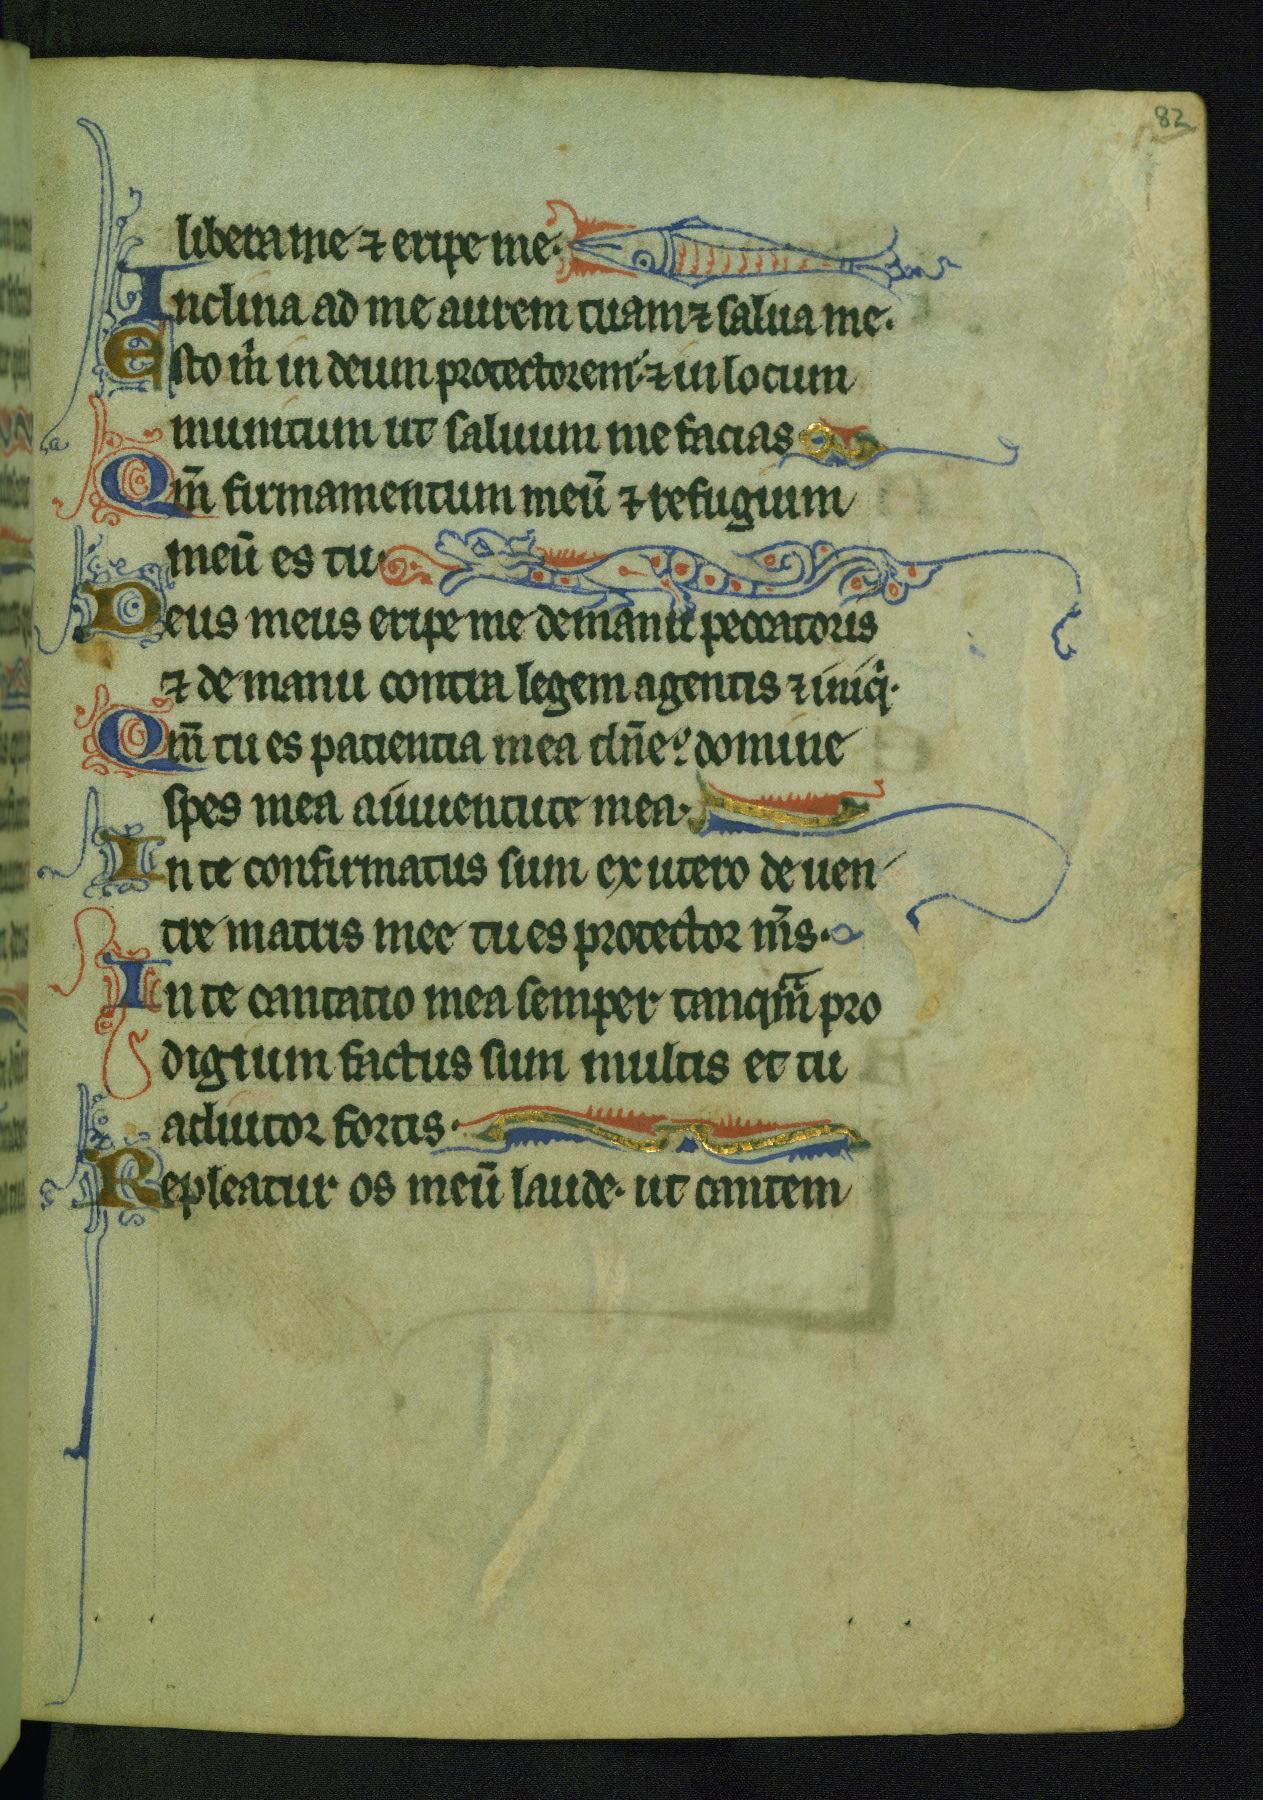 82
libera me ⁊ eripe me·
Inclina ad me aurem tuam ⁊ salua me·
Esto m̄ in deum protectorem ⁊ in locum
munitum ut saluum me facias
Qm̄ firmamentum meū ⁊ refugium
meū es tu·
Deus meus eripe me de manu peccatoris
⁊ de manu contra legem agentis ⁊ iniq̇·
Qm̄ tu es patientia mea dn̄e domine
spes mea a iuuentute mea·
In te confirmatus sum ex utero de uen
tre matris mee tu es protector m̄s·
In te cantatio mea semper tanqm̄ pro
digium factus sum multis et tu
adiutor fortis·
Repleatur os meū laude· ut cantem